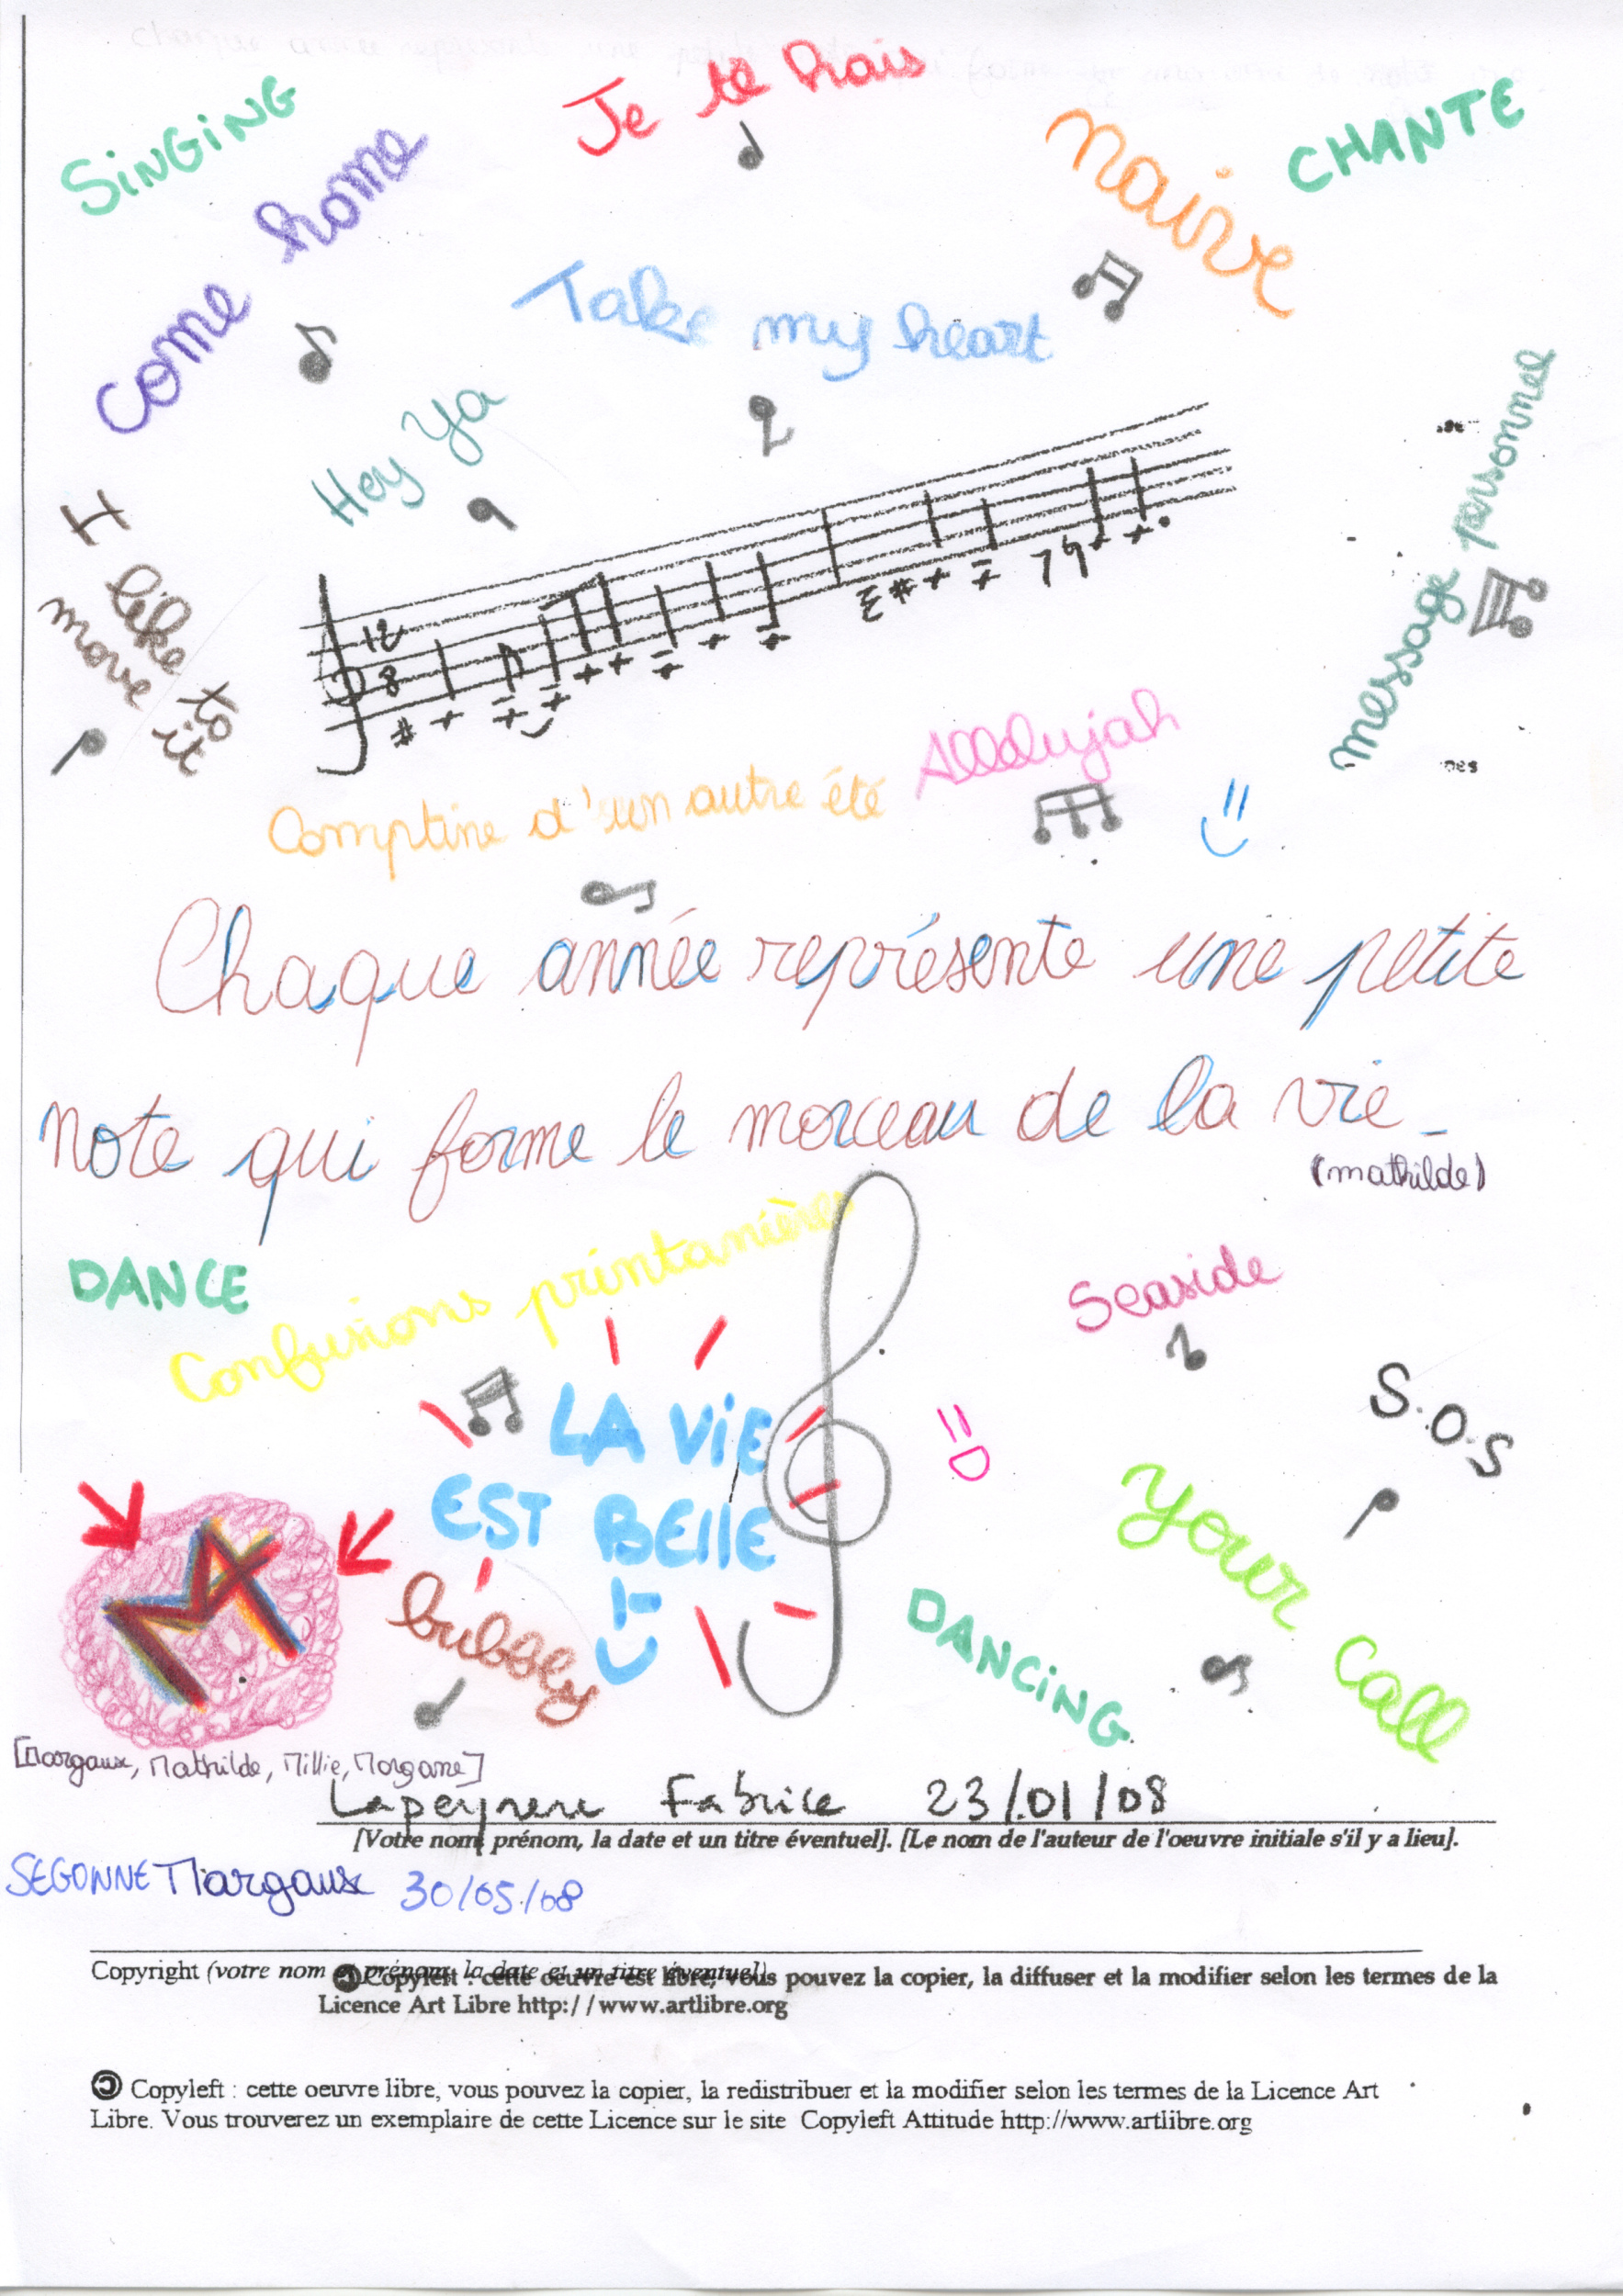 Je te hais
SiNGiNG
CHANTE
come home
naive
Take my heart
Hey Ya
message personnel
I like to
move it
12
8
Allelujah
Comptine d'un autre été
=)
Chaque année représente une petite
note qui forme le morceau de la vie_
(mathilde)
DANCE
Confusions printanières
Seaside
S.O.S
LA ViE
EST BEllE
=D
your call
M
bubbly
DANCiNG
[Margaux, Mathilde, Millie, Morgane]
Lapeyrere Fabrice 23/01/08
[Votre nom, prénom, la date et un titre éventuel]. [Le nom de l'auteur de l'oeuvre initiale s'il y a lieu].
SEGONNE Margaux 30/05/08
Copyright (votre nom et prénom, la date et un titre éventuel)
Copyleft : cette oeuvre est libre, vous pouvez la copier, la diffuser et la modifier selon les termes de la
Licence Art Libre http://www.artlibre.org
Copyleft : cette oeuvre libre, vous pouvez la copier, la redistribuer et la modifier selon les termes de la Licence Art
Libre. Vous trouverez un exemplaire de cette Licence sur le site Copyleft Attitude http://www.artlibre.org